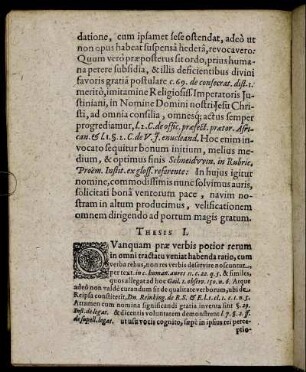 datione, cum ipsamet sese ostendat, adeò ut
non opus habeat suspensâ hederâ, revocavero:
Quum verò præposterus sit ordo, prius huma-
na petere subsidia, & illis deficientibus divini
favoris gratiâ postulare c. 69. de consecrat. dist. 1.
meritò, imitamine Religiosiss. Imperatoris Ju-
stiniani, in Nomine Domini nostri Jesu Chri-
sti, ad omnia consilia, omnesq; actus semper
progrediamur, l. 2. C. de offic. præfect. prætor. Afri-
can. & l. 1. §. 2. C. de V. J. enucleand. Hoc enim in-
vocato sequitur bonum initium, melius me-
dium, & optimus finis Schneidvvin. in Rubric.
Proëm. Instit. ex gloss. referente: In hujus igitur
nomine, commodissimis nunc solvimus auris,
solicitati bonâ ventorum pace, navim no-
stram in altum producimus, velificationem
omnem dirigendo ad portum magis gratum.
THESIS I.
QVanquam præ verbis potior rerum
in omni tractatu veniat habenda ratio, cum
verba rebus, non res verbis deservire noscuntur,
per text. in c. human. aures 11. c. 22. q. 5. & similes,
quos allegat ad hoc Gail. 2. observ. 130. n. 6. Atque
adeò non valdè curandum sit de qualitate verborum, ubi de
Reipsa constiterit, Dn. Reinking. de R. S. & E. l. 1. cl. 1. c. 1. n. 5.
Attamen cum nomina significandi gratiâ inventa sint §. 29.
Inst. de legat. & dicentis voluntatem demonstrent l. 7. §. 2. ff.
de supell. legat. ut usu vocis cognito, sæpè in ipsam rei perce-
ptio-